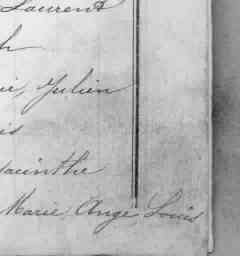 Laurent
h
ie, Julien
is
yacinthe
Marie, Ange, Louis